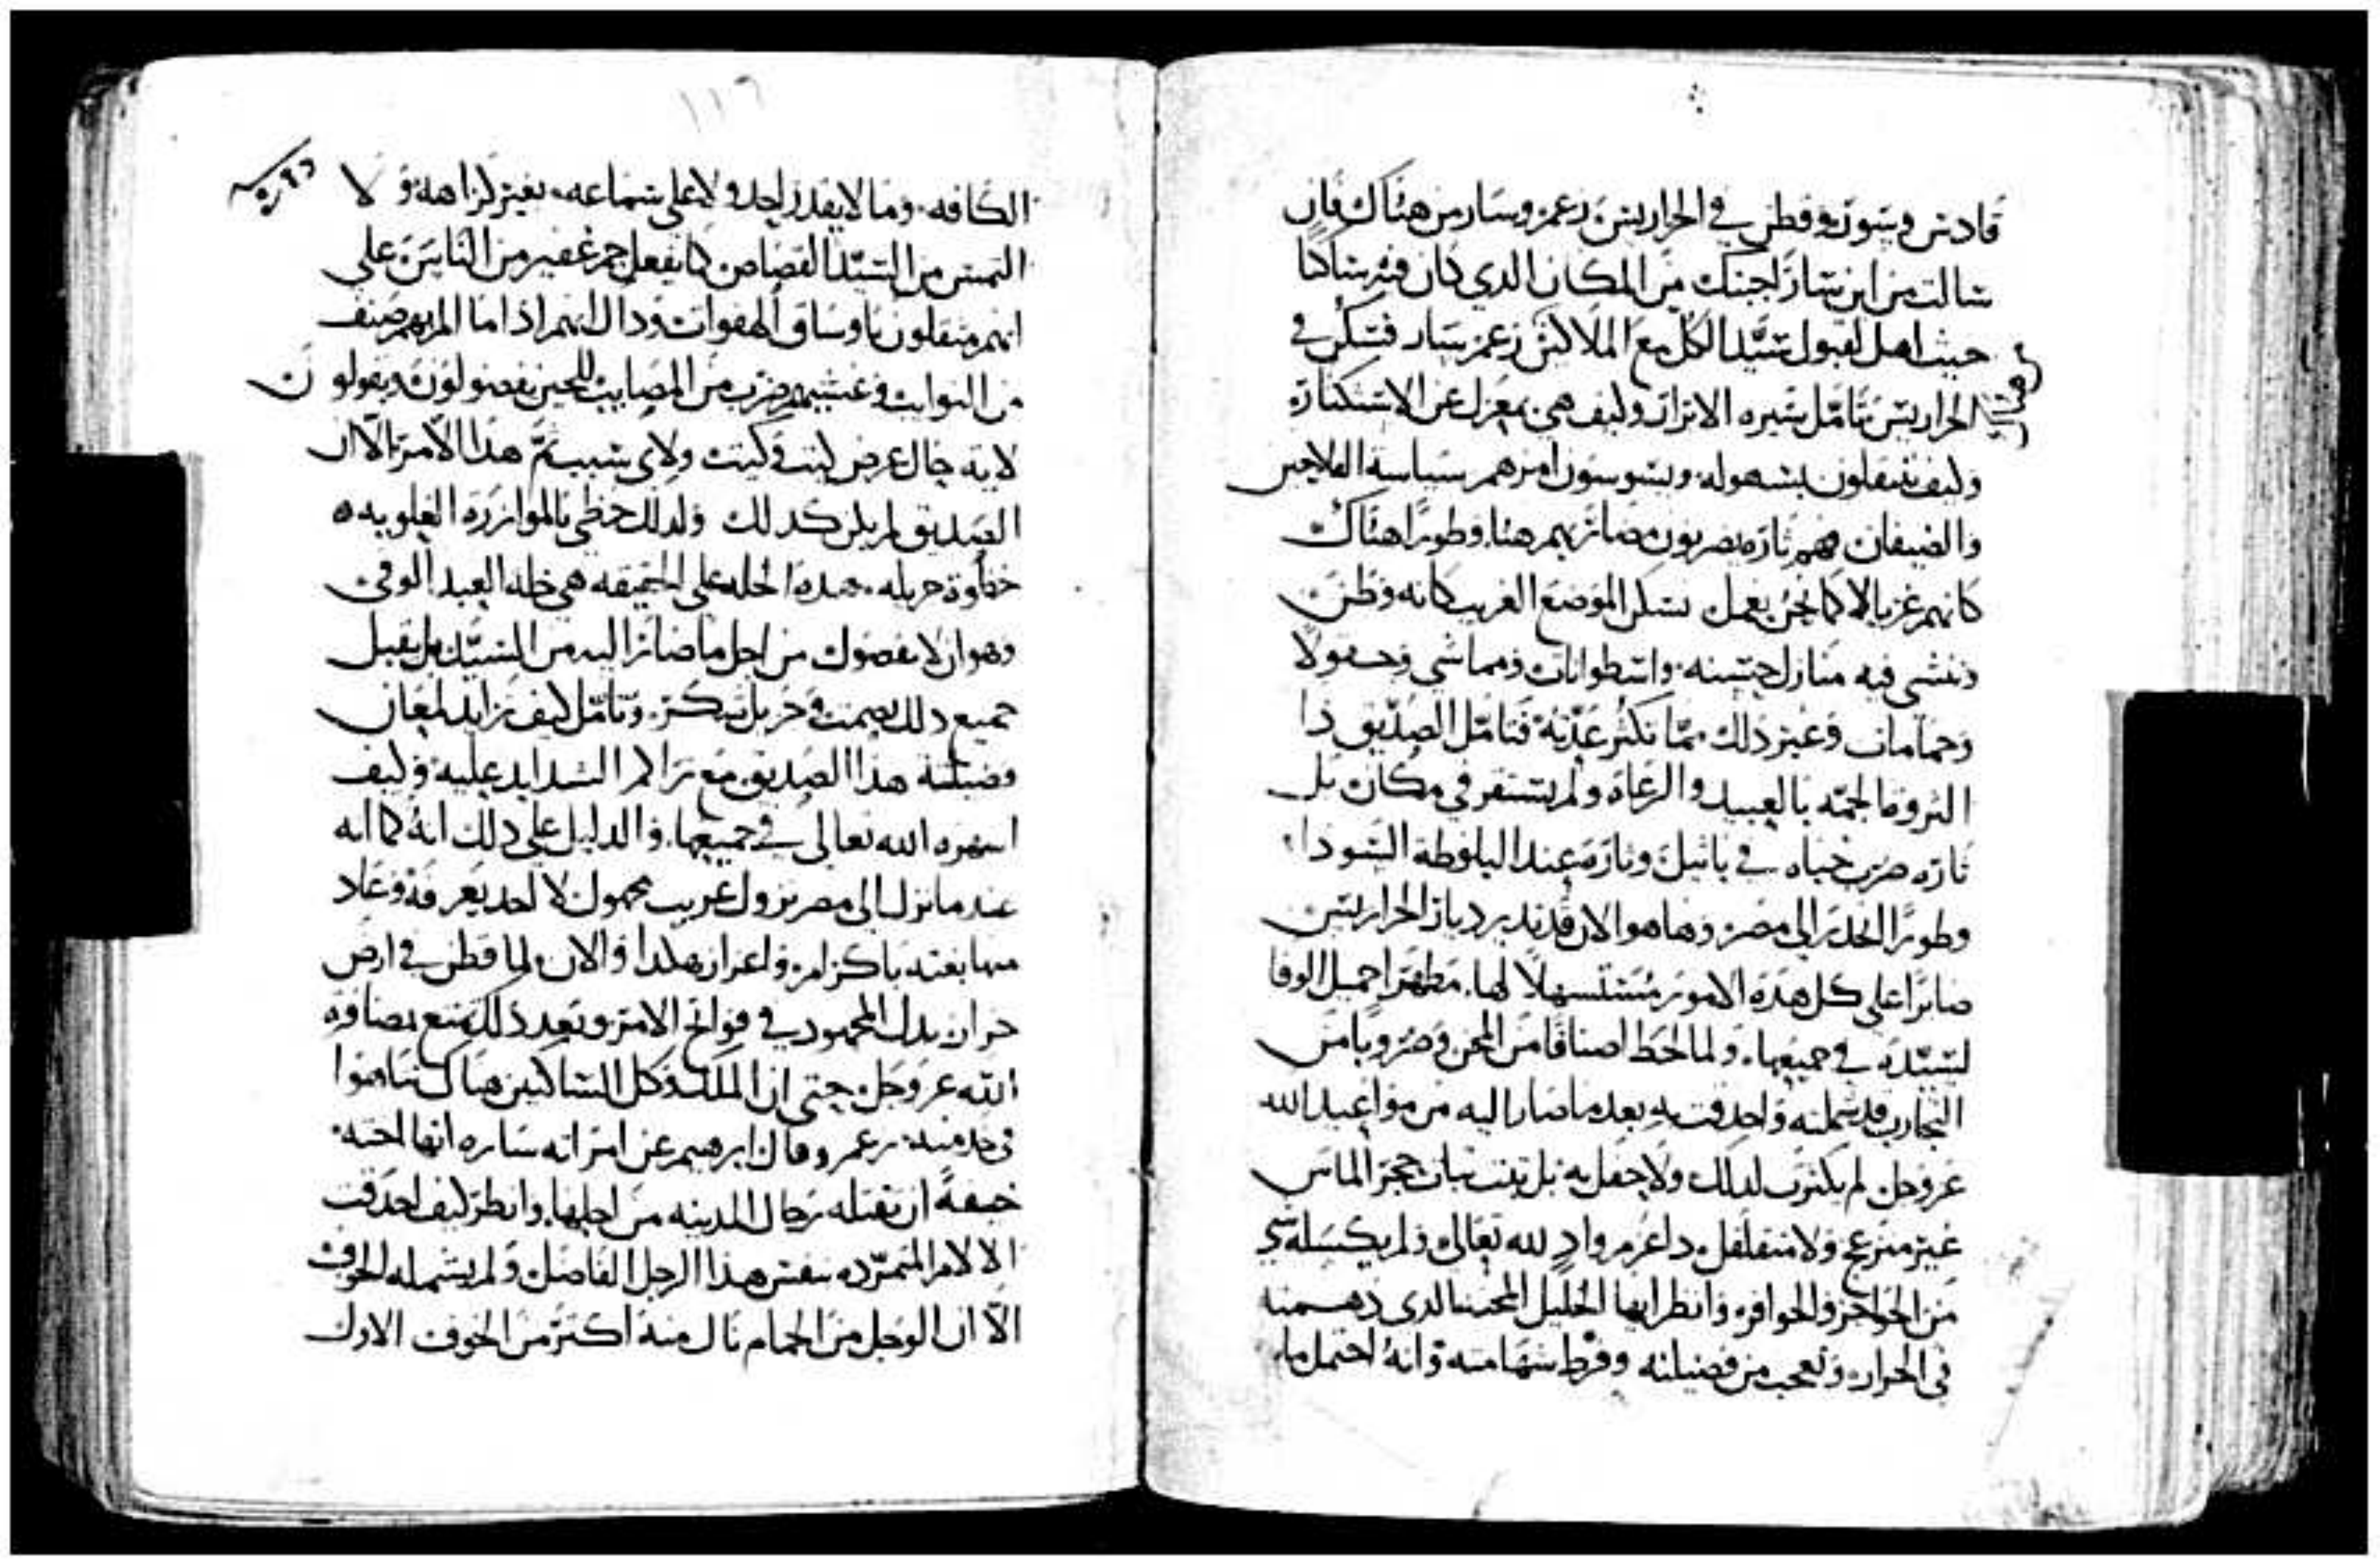 قادس وسور وقطن في الحراريس زعم وسار من هناك فان
سالت من اين سار اجبتك من المكان الدي كان فيه ساكنا
حيث اهل لقبول سيد الكل مع الملاكين زعم سار فسكن في
الحراريس تامل سيره الابرار وكيف هي بمعزل عن الاستكتاره
وكيف ينتقلون بسهوله ويسوسون امرهم سياسة الملاحين
والضيفان فهم تارة يضربون مضاربهم هنا وطورًا هناك
كانهم غربا لا كما نحن نعمل نسكن الموضع الغريب كانه وطن
وننشي فيه منازل حسنه واسطوانات ومماشي وحقولا
وحمامات وغير ذلك مما تكثر عدته فتامل الصديق ذا
الثروة الجمه بالعبيد والرعاة ولم يستقر في مكان بل
تارة ضرب خباه في باثيل وتارة عند البلوطة السودا
وطورًا انحدر الى مصر وها هو الان قد تدير ديار الحراريس
صابرًا على كل هذه الامور مستسهلا لها مظهرا جميل الوفا
لسيده في جميعها ولما لحظ اصنافا من المحن وضروبا من
التجارب قد شملته واحدقت به بعد ما صار اليه من مواعيد الله
عز وجل لم يكترث لدلك ولا حفل به بل ثبت ثبات حجر الماس
غير منزعج ولا متقلقل داعزم واد لله تعالى ولم يكسله شي
من الحواجز والحوافز وانظر ايها الخليل المحنه الدي دهمته
في الحرار وتعجب من فضيلته وفرط شهامته وانه احتمل ما
١١٦
الكافه وما لا يقدر احد ولا على سماعه بغير كراهة ولا
التمس من السيد القصاص كما يفعل جم غفير من الناس على
انهم مثقلون باوساق الهفوات وداك انهم اذا ما الم بهم صنف
من النوايب وغشيهم ضرب من المصايب للحين يفضولون ويقولون
لاية حال عرض كيت وكيت ولاي سبب تم هذا الامر الا ان
الصديق لم يكن كدلك ولدلك حظي بالموازرة العلويه
حظوة جزيله هده الحله على الحقيقه هي خلة العبد الوفي
وهو ان لا يفضول من اجل ما صار اليه من السيد بل يقبل
جميع دلك بصمت وجزيل شكر وتامل كيف تزايد لمعان
فضيلة هذا الصديق مع تراكم الشدايد عليه وكيف
اشهره الله تعالى في جميعها والدليل على ذلك انه كما انه
عند ما نزل الى مصر نزول غريب مجهول لا احد يعرفه وعاد
منها بغتة باكرام واعزاز هكدا والان لما قطن في ارض
حران بدل المجهود في فواتح الامر وبعد ذلك تمتع بمصافة
الله عز وجل حتى ان الملك وكل الساكنين هناك تناهوا
في خدمته زعم وقال ابرهيم عن امراته ساره انها اخته
خيفة ان تقتله رجال المدينه من اجلها وانظر كيف احدقت
الالام المتمرده بنفس هذا الرجل الفاضل ولم يشمله الخوف
الا ان الوجل من الحمام نال منه اكثر من الخوف الاول